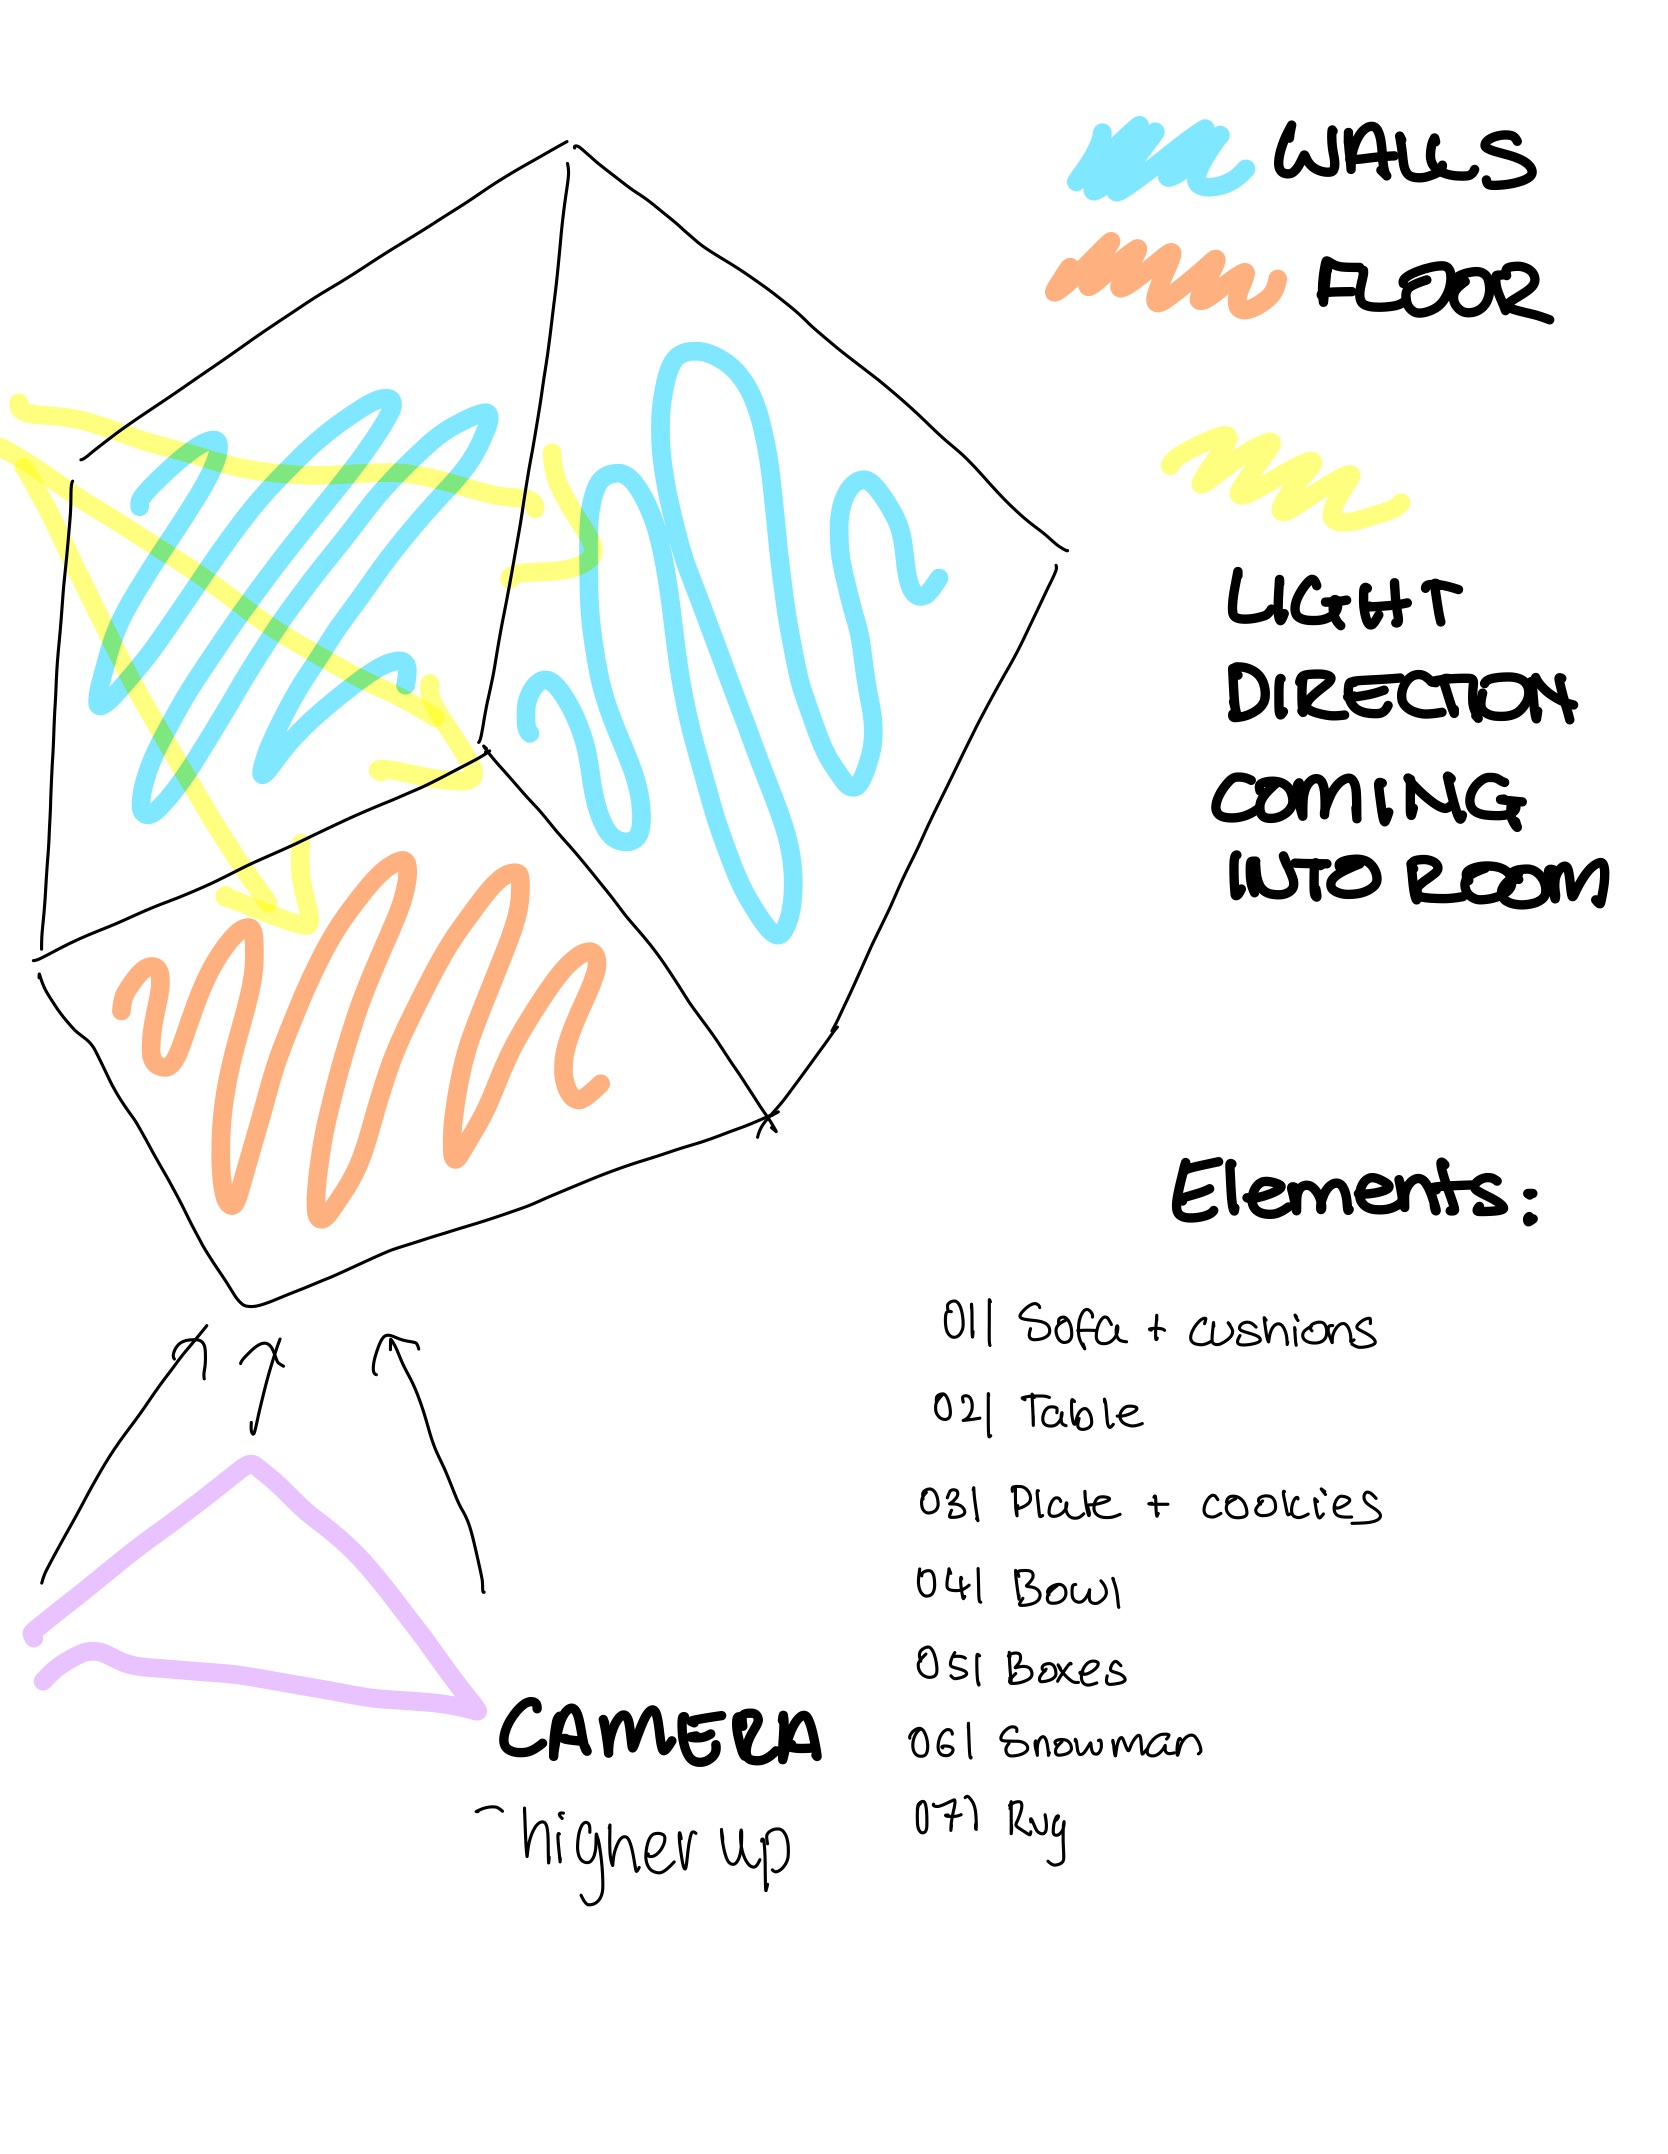 WALLS
FLOOR
LIGHT
DIRECTION
COMING
INTO ROOM
Elements:
01| Sofa + cushions
02| Table
03| Plate + cookies
04| Bowl
05| Boxes
06| Snowman
07| Rug
CAMERA
- higher up